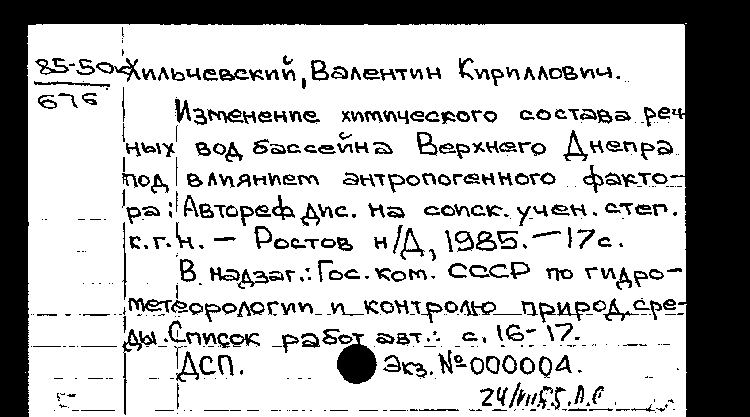 85-50к Хильчевский, Валентин Кириллович.
676
Изменение химического состава реч-
ных вод бассейна Верхнего Днепра
под влиянием антропогенного факто-
ра: Автореф дис. на соиск. учен. степ.
к.г.н. — Ростов н/Д, 1985. — 17с.
В надзаг.: Гос. ком. СССР по гидро-
метеорологии и контролю природ. сре-
ды. Список работ авт.: с. 16-17.
ДСП. Экз. № 000004.